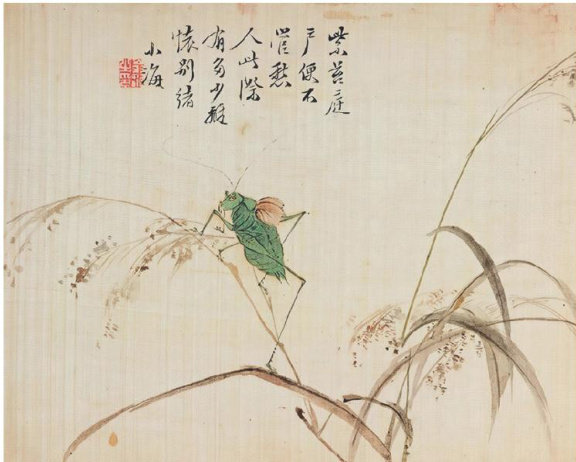 紫苔庭
戶便不
管愁
人此際
有多少離
懷別緒
小海